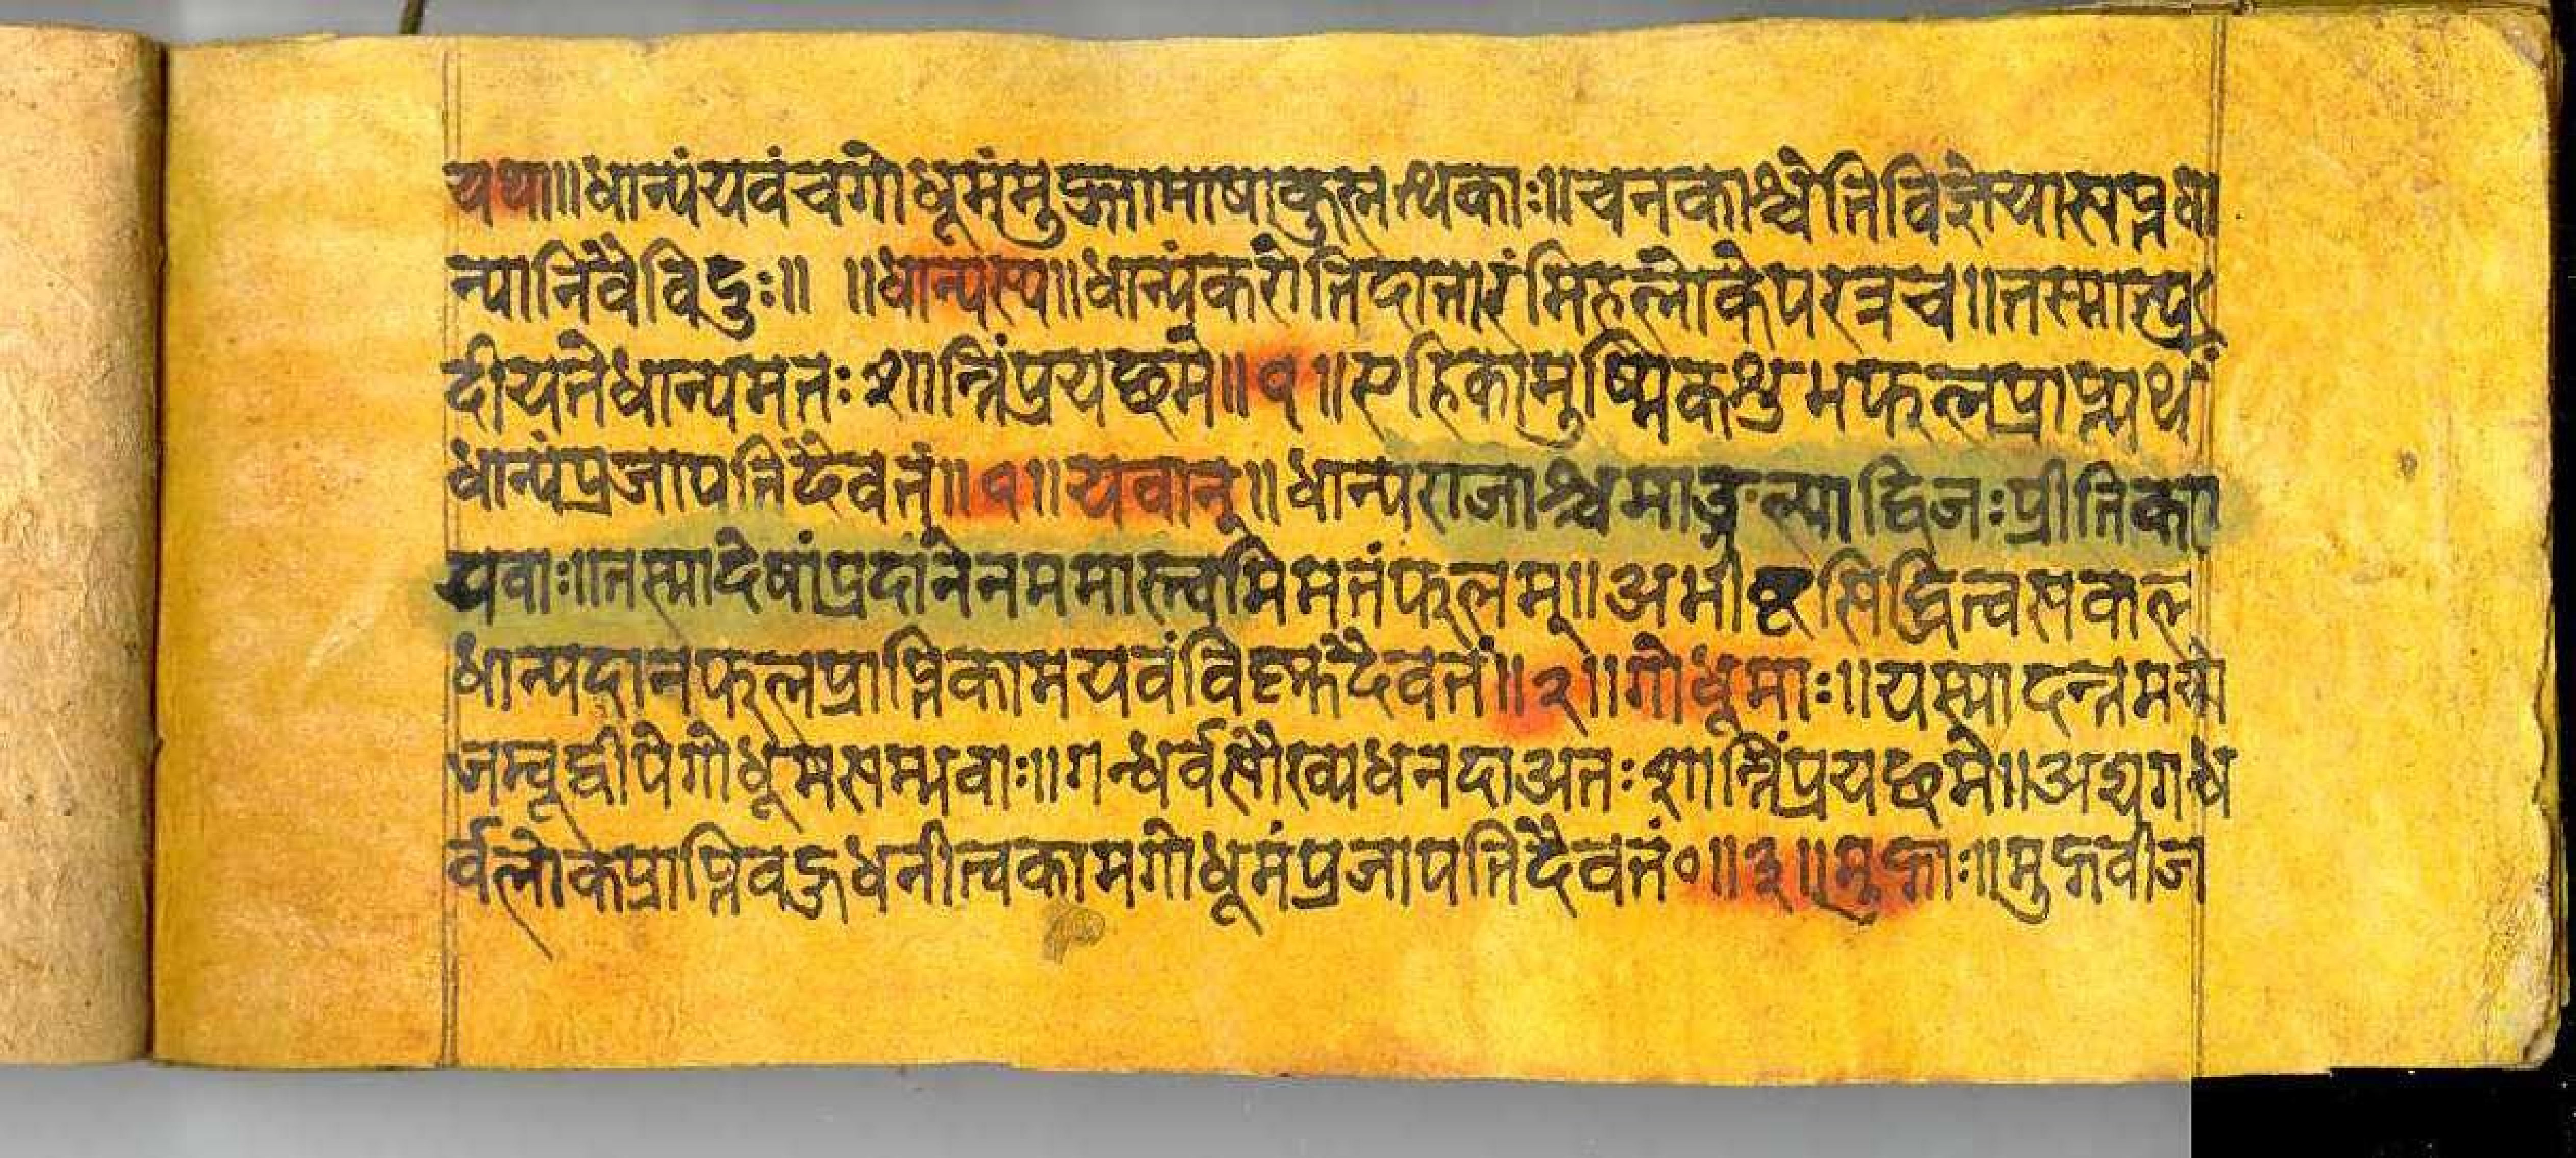 यथा॥धान्यंयवंचगोधूमंमुद्गामाषाकुलत्थकाः॥चनकाश्चेतिविज्ञेयासप्तधा
न्यानिवैविदुः॥ ॥धान्यस्य॥धान्यंकरोतिदातारंमिहलोकेपरत्रच॥तस्मात्प्र
दीयतेधान्यमतःशान्तिंप्रयछमे॥१॥एहिकामुष्मिकशुभफलप्राप्त्यर्थं
धान्यंप्रजापतिदैवतं॥१॥यवान्॥धान्यराजाश्चमाङ्गल्याद्विजःप्रीतिकरा
यवाः॥तस्मादेषांप्रदानेनममास्त्वभिमतंफलम्॥अभीष्टसिद्धित्वसकल
धान्यदानफलप्राप्तिकामयवंविष्णुदैवतं॥२॥गोधूमाः॥यस्मादन्नमयो
जम्बूद्वीपेगोधूमसम्भवाः॥गन्धर्वसौख्यधनदाअतःशान्तिंप्रयछमे॥अद्यगन्ध
र्वलोकप्राप्तिवहुधनीत्वकामगोधूमंप्रजापतिदैवतं०॥३॥मुद्गाः॥मुद्गवीज